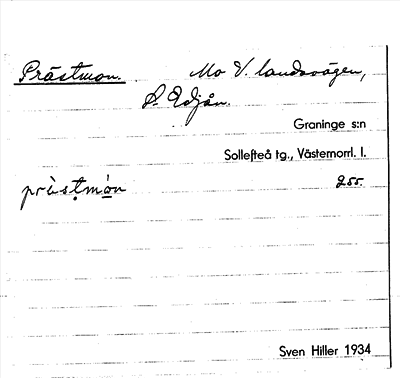 Prästmon. Mo V. landsvägen,
S. Edjån.
Graninge s:n
Sollefteå tg., Västernorrl. l.
prästmón 255.
Sven Hiller 1934